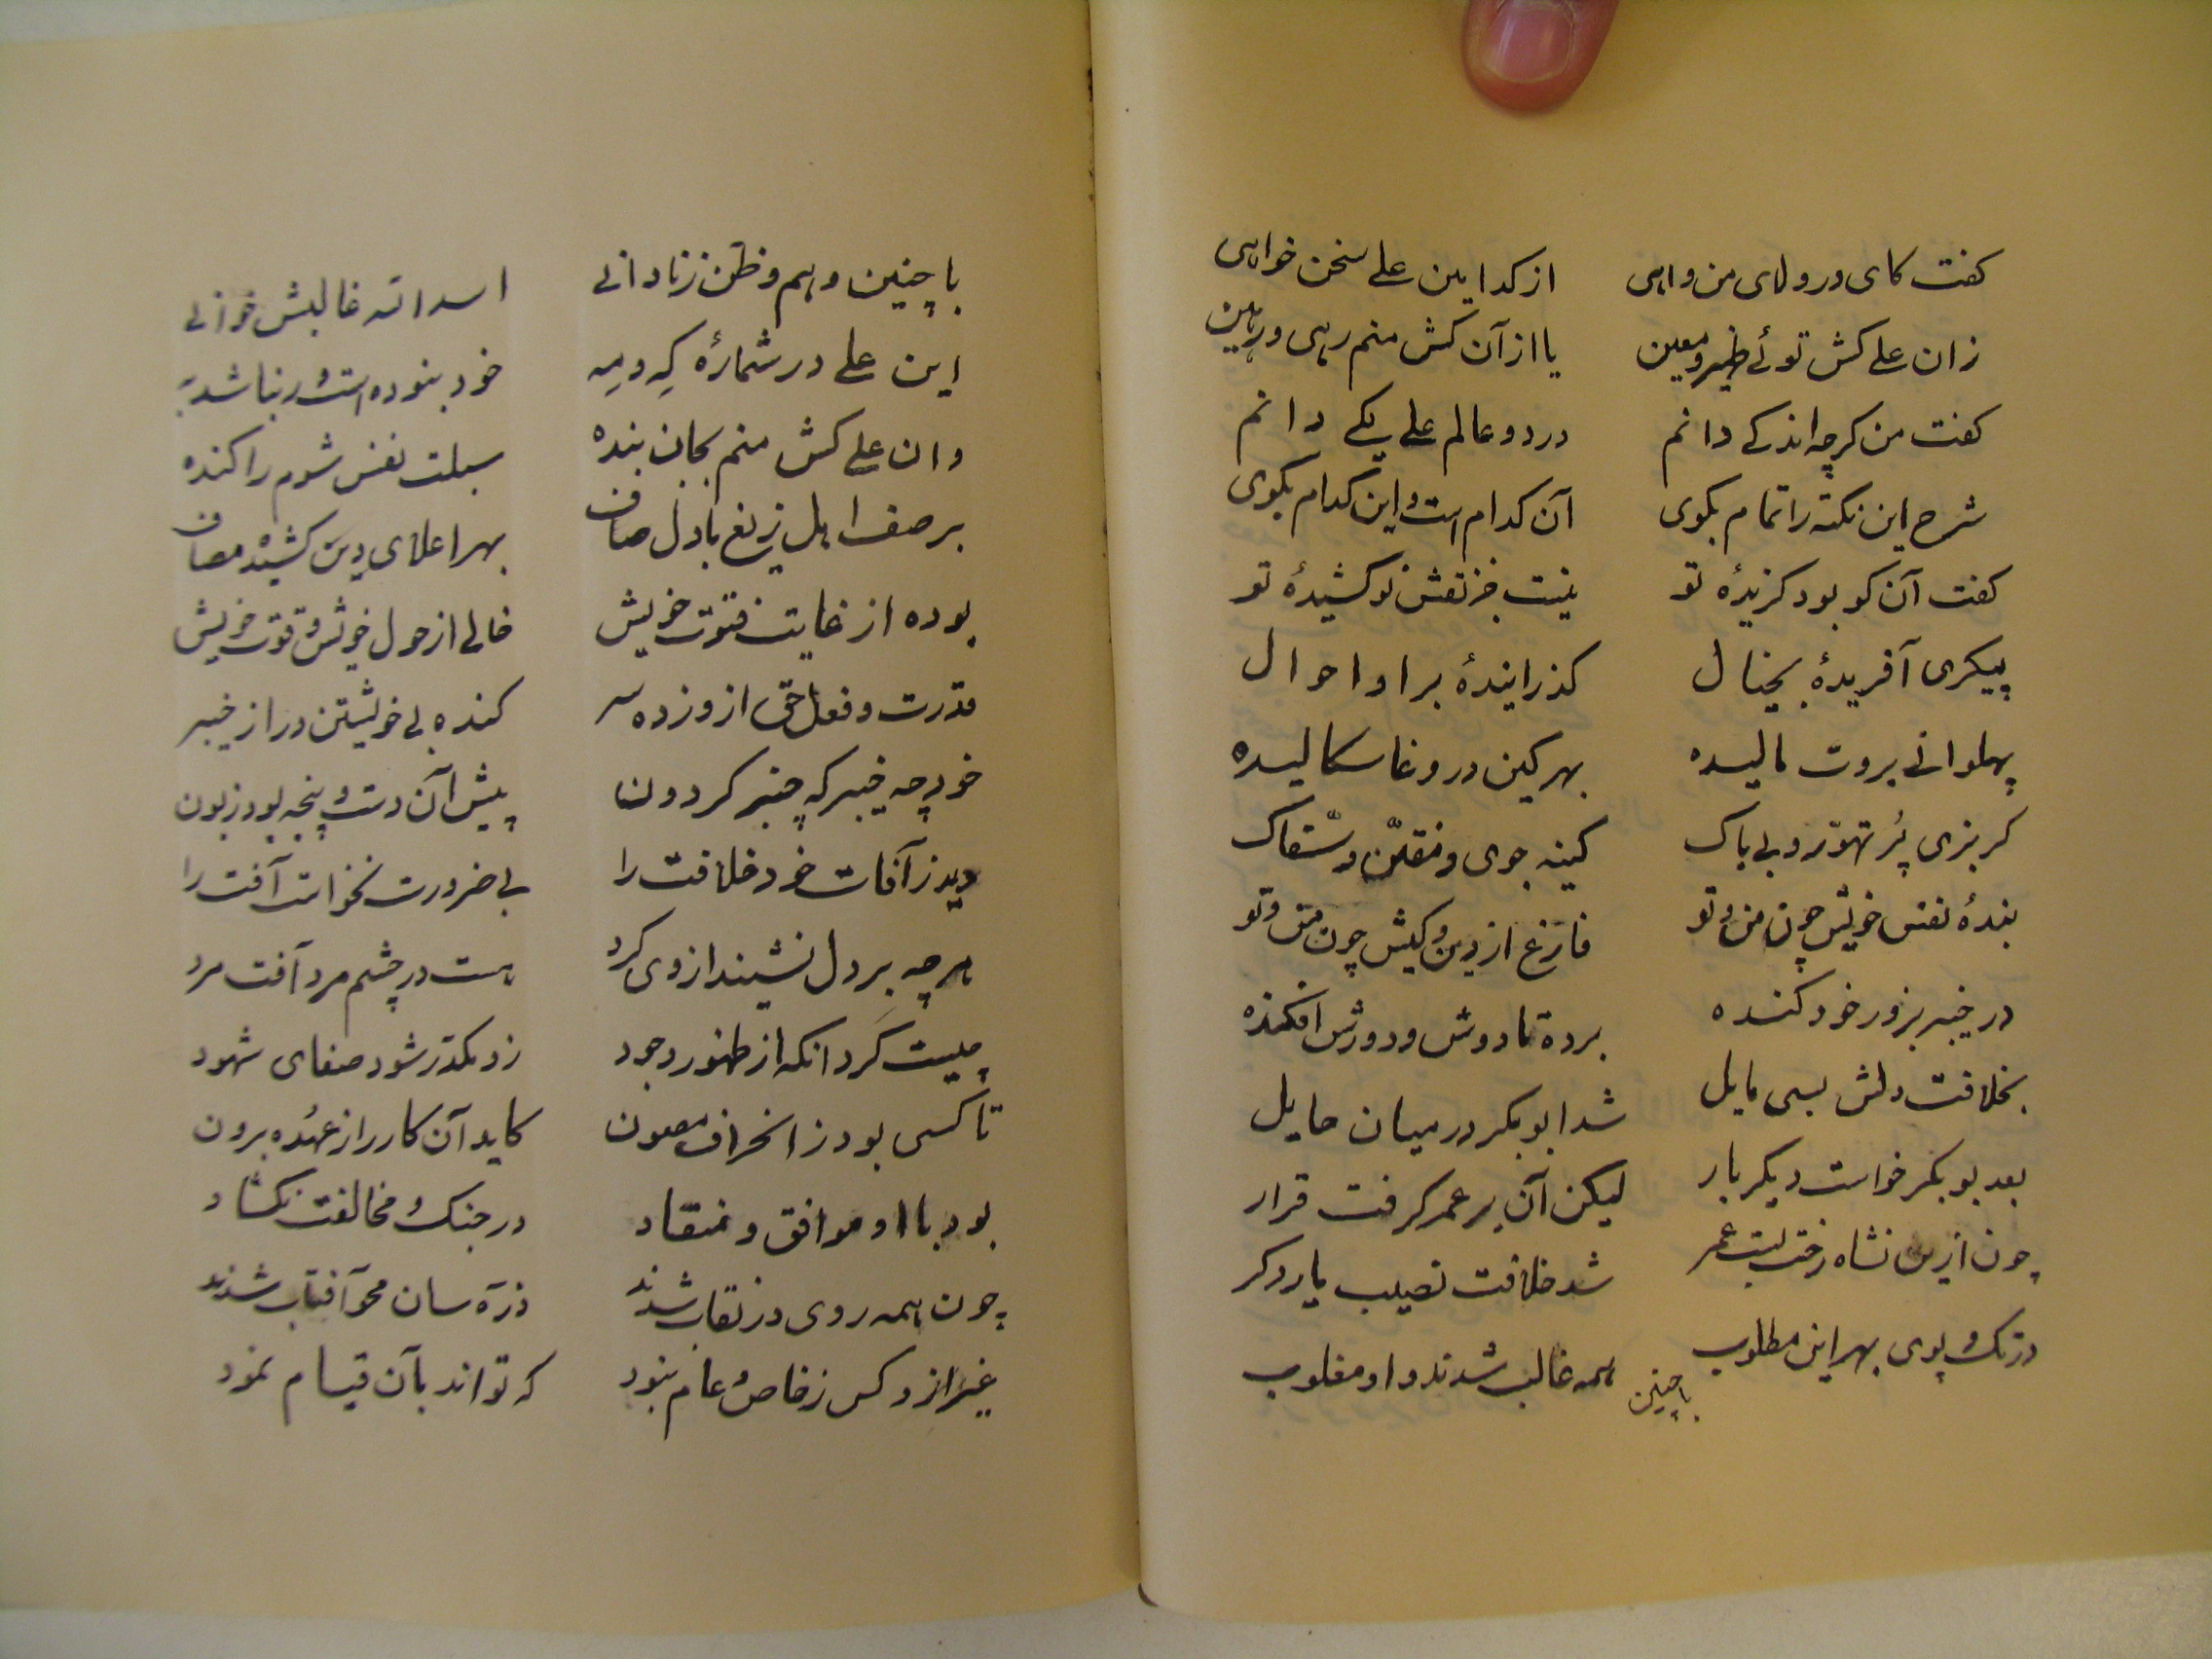 کفت کای در ولای من واهی    از کدامین علے سخن خواهی
زان علے کش توئے ظهیر و معین    یا از آن کش منم رهی و رهین
کفت من کرچه اندکے دانم    در دو عالم علے یکے دانم
شرح این نکته را تمام بکوی    آن کدام است و این کدام بکوی
کفت آن کو بود کزیدهٔ تو    نیست جز نقش نو کشیدهٔ تو
پیکری آفریدهٔ بخیال    کذرانیدهٔ براو احوال
پهلوانے بروت مالیده    بهر کین در وغا سکالیده
کربزی پُر تهوّر و بی باک    کینه جوی و مفتّن و سفّاک
بندهٔ نفس خویش چون من و تو    فارغ از دین و کیش چون من و تو
در خیبر بزور خود کنده    برده تا دوش و دورش افکنده
بخلافت دلش بسی مایل    شد ابو بکر در میان حایل
بعد بو بکر خواست دیکر بار    لیکن آن بر عمر کرفت قرار
چون ازین نشاه رخت بست عمر    شد خلافت نصیب یار دکر
در تک و پوی بهر این مطلوب    همه غالب شدند و او مغلوب
با چنین
با چنین وهم و ظن ز نادانے    اسد الله غالبش خوانے
این علے در شمارهٔ کِه و مِه    خود نبوده است ور نباشد به
وان علے کش منم بجان بنده    سبلت نفس شوم را کنده
بر صف اهل زیغ با دل صاف    بهر اعلای دین کشیده مصاف
بوده از غایت فتوت خویش    خالے از حول خویش و قوت خویش
قدرت و فعل حق از و زده سر    کنده بے خویشتن در از خیبر
خود چه خیبر که چنبر کردون    پیش آن دست و پنجه بود زبون
دید ز آفات خود خلافت را    بے ضرورت نخواست آفت را
هر چه بر دل نشیند از وی کرد    هست در چشم مرد آفت مرد
چیست کرد انکه از ظهور وجود    زو مکدّر شود صفای شهود
تا کسی بود ز انحراف مصون    کاید آن کار را ز عُهده برون
بود با او موافق و منقاد    در جنک و مخالفت نکشاد
چون همه روی در نقاب شدند    ذرّه سان محو آفتاب شدند
غیر از و کس ز خاص و عام نبود    که تواند بآن قیام نمود